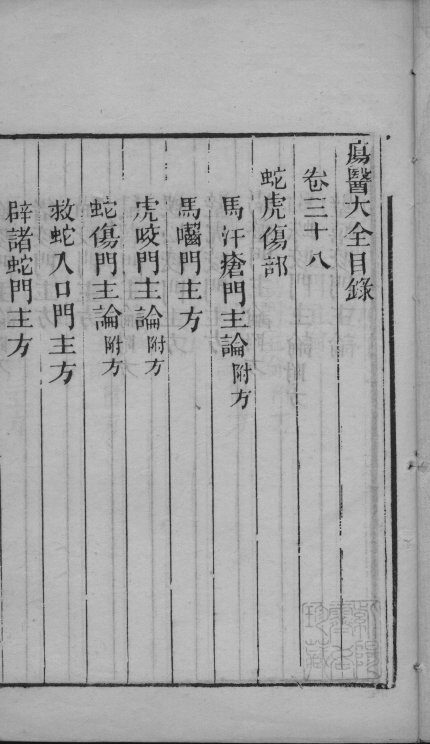 瘍醫大全目錄
卷三十八
蛇虎傷部
馬汗瘡門主論附方
馬嚙門主方
虎咬門主論附方
蛇傷門主論附方
救蛇入口門主方
辟諸蛇門主方